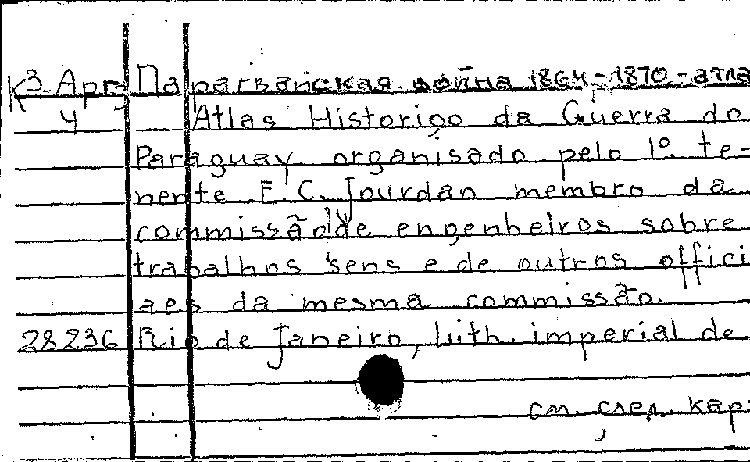 К3 Арг Парагвайская война 1864-1870 - атла
4 Atlas Historico da Guerra do
Paraguay organisado pelo 1º te-
nente E. C. Jourdan membro da
commissão de engenheiros sobre
trabalhos sens e de outros offici
aes da mesma commissão.
28236 Rio de Janeiro, Lith. imperial de
см. след. кар.